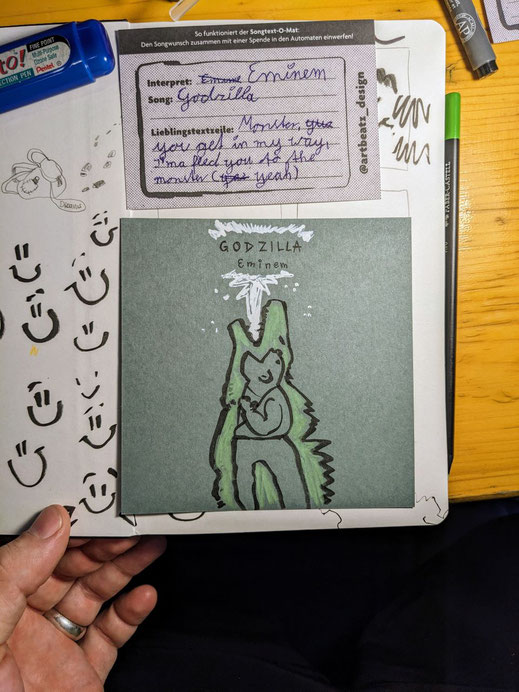 So funktioniert der Songtext-O-Mat:
Den Songwunsch zusammen mit einer Spende in den Automaten einwerfen!
Interpret: Eminem
Song: Godzilla
Lieblingstextzeile: Monster,
you get in my way,
I'ma feed you to the
monster (yeah)
@artbeatz_design
GODZILLA
Eminem
FINE POINT
Multi-Purpose
Pentel
FABER-CASTELL